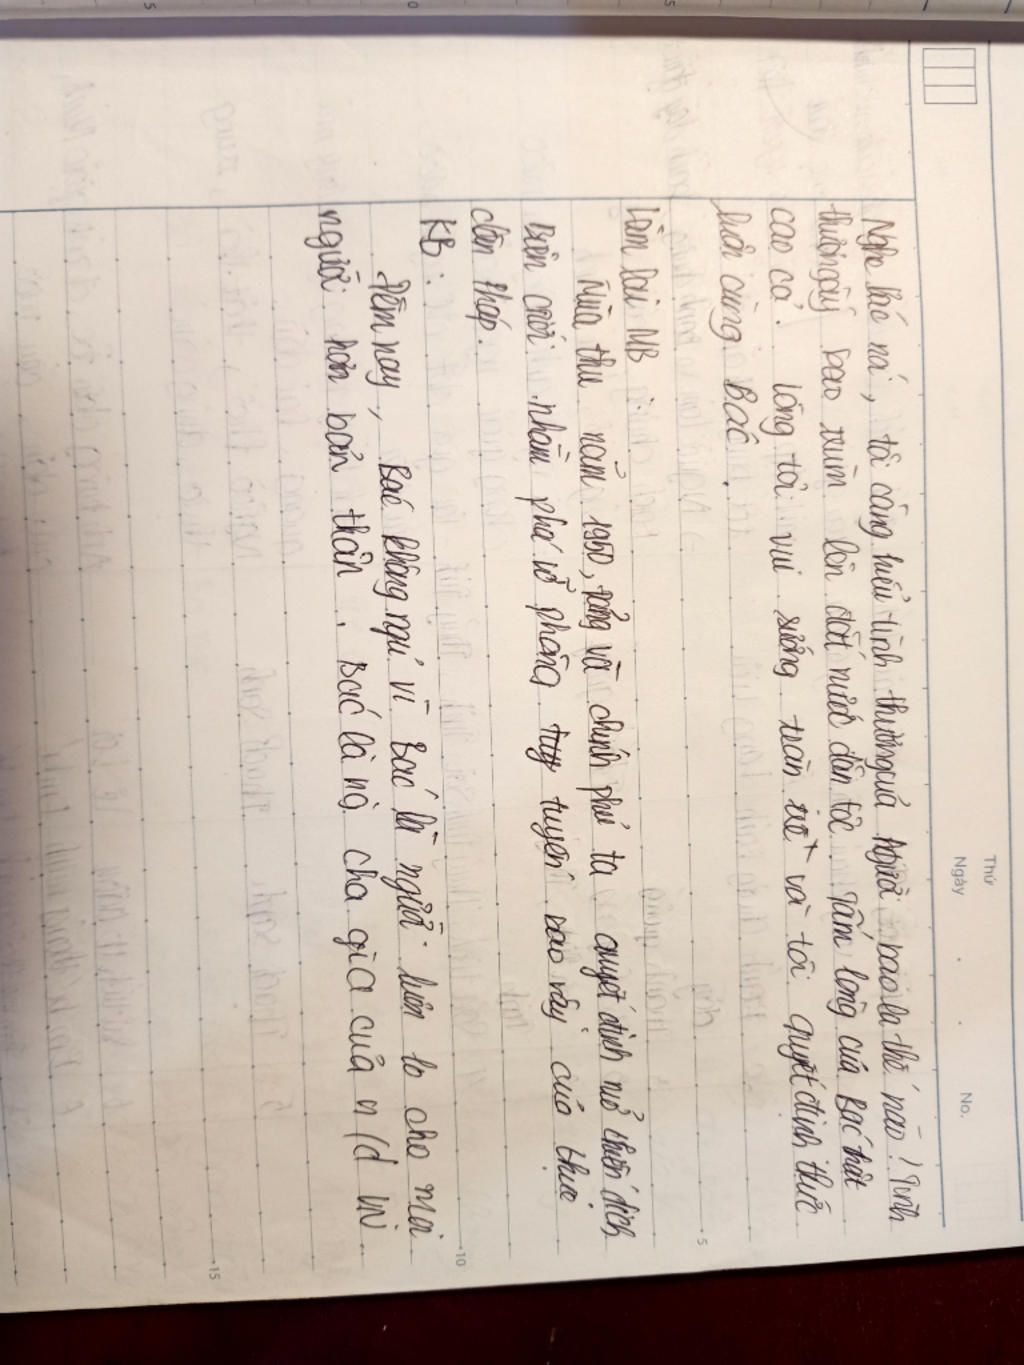 Thứ
Ngày . .
No.
Nghe Bác nói, tôi càng hiểu tình thương của Người bao la thế nào! Tình
thương ấy bao trùm lên đất nước dân tộc. Tấm lòng của Bác thật
cao cả. Lòng tôi vui sướng tràn trề và tôi quyết định thức
luôn cùng Bác.
Làm lại MB
Mùa thu năm 1950, Đảng và chính phủ ta quyết định mở chiến dịch
Biên giới nhằm phá vỡ phòng tuyến bao vây của thực
dân Pháp.
KB:
Đêm nay, Bác không ngủ vì Bác là người luôn lo cho mọi
người hơn bản thân. Bác là ng cha già của n/d VN
5
10
15